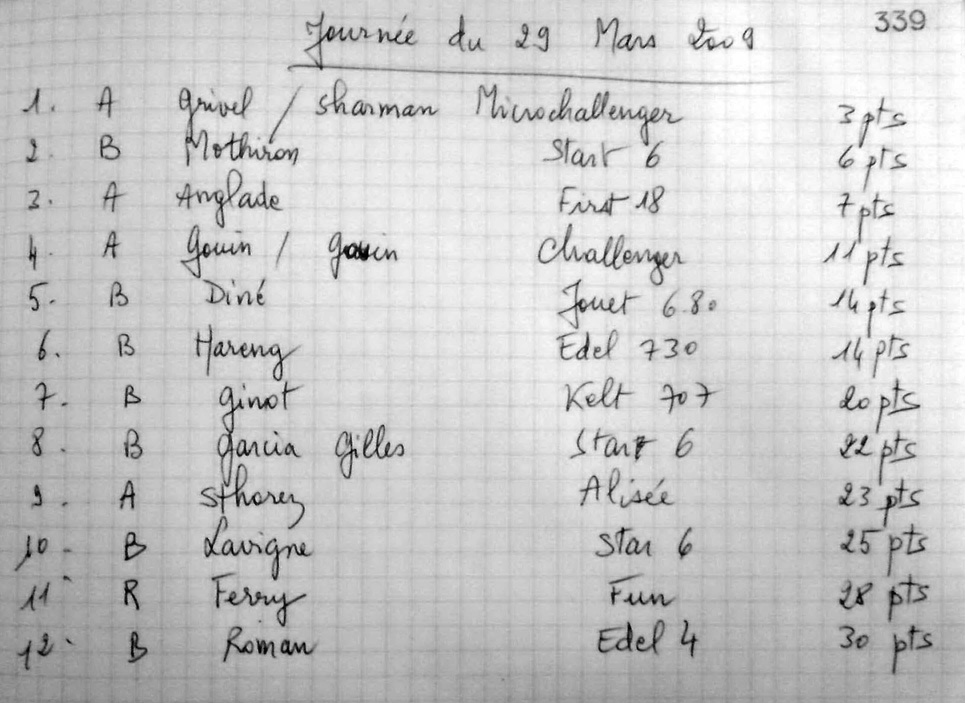 339
Journée du 29 Mars 2009
1. A Grivel / Sharman Microchallenger 3 pts
2. B Mothiron Start 6 6 pts
3. A Anglade First 18 7 pts
4. A Gouin / Gouin Challenger 11 pts
5. B Diné Jouet 6.80 14 pts
6. B Hareng Edel 730 14 pts
7. B Ginot Kelt 707 20 pts
8. B Garcia Gilles Start 6 22 pts
9. A Sthorez Alisée 23 pts
10. B Lavigne Star 6 25 pts
11. R Ferry Fun 28 pts
12. B Roman Edel 4 30 pts